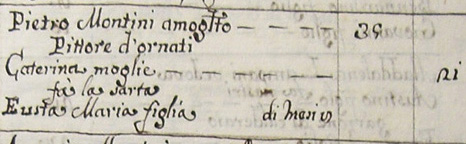 Pietro Montini amog.to — — 39
Pittore d'ornati
Caterina moglie — — — 21
fà la sarta
Eusta Maria figlia di mesi